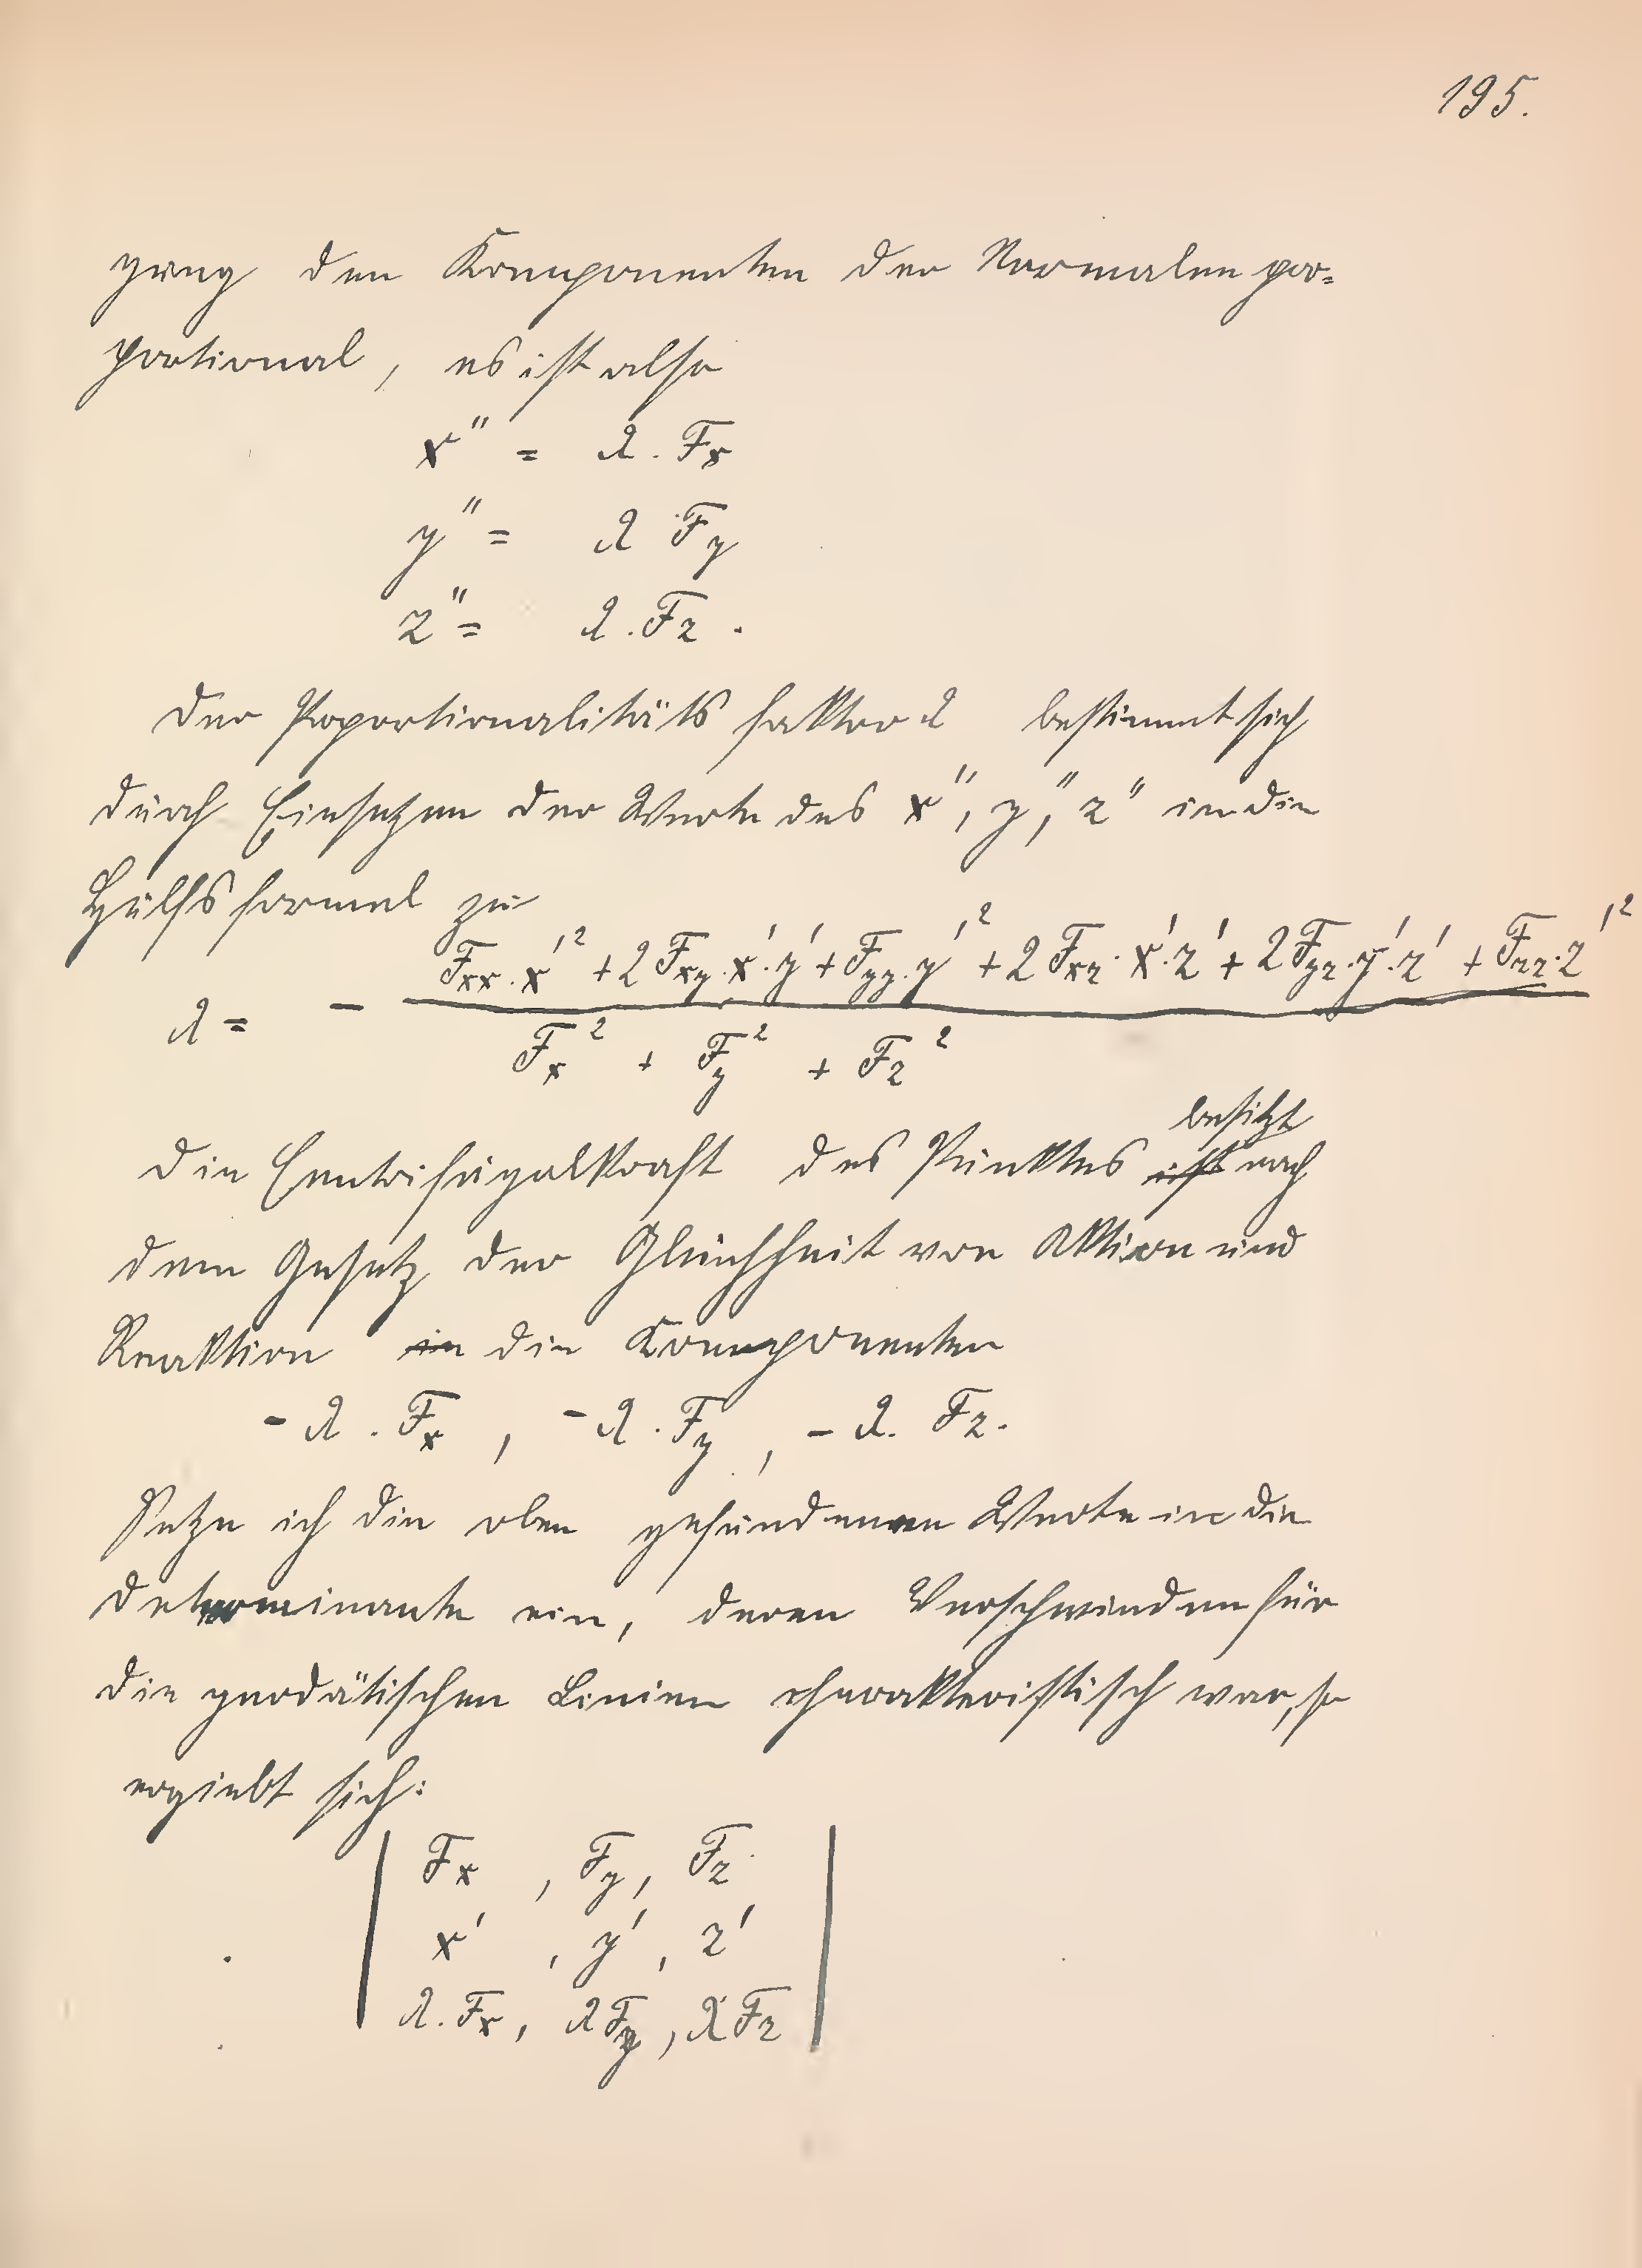 195.
gung den Komponenten der Normalen pro-
portional, es ist also
x'' = λ . F_x
y'' = λ F_y
z'' = λ . F_z .
Der Proportionalitätsfaktor λ bestimmt sich
durch Einsetzen der Werte des x'', y'', z'' in die
Hülfsformel zu
λ = - (F_xx . x'^2 + 2 F_xy . x' . y' + F_yy . y'^2 + 2 F_xz . x' . z' + 2 F_yz . y' . z' + F_zz . z'^2) / (F_x^2 + F_y^2 + F_z^2)
besitzt
Die Centrifugalkraft des Punktes ist nach
dem Gesetz der Gleichheit von Aktion und
Reaktion in die Komponenten
- λ . F_x , - λ . F_y , - λ . F_z .
Setze ich die oben gefundenen Werte in die
Determinante ein, deren Verschwinden für
die geodätischen Linien charakteristisch war, so
ergiebt sich:
| F_x , F_y , F_z |
| x' , y' , z' |
| λ . F_x , λ F_y , λ F_z |